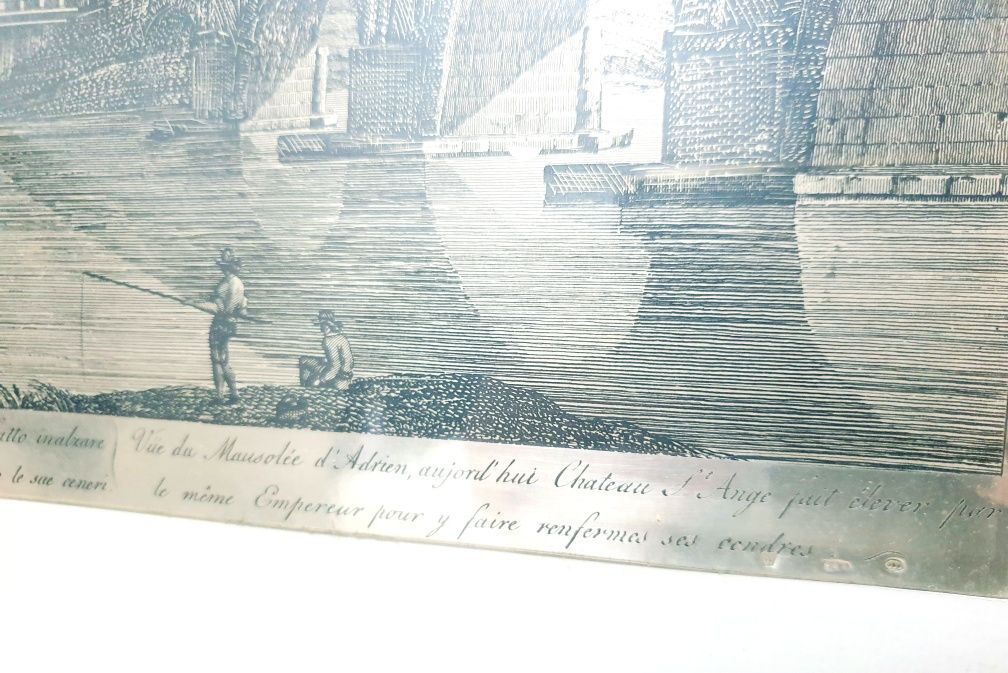 atto inalzare
e le sue ceneri
Vüe du Mausolée d'Adrien, aujord'hui Chateau St Ange fait élever par
le même Empereur pour y faire renfermes ses cendres